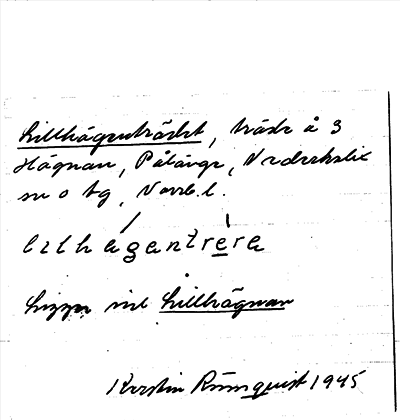 Lillhägnträdet, träde å 3
Hägnan, Pålänge, Nederkalix
sn o tg, Norrb. l.
Ligger inl Lillhägnan
Kerstin Rönnquist 1945